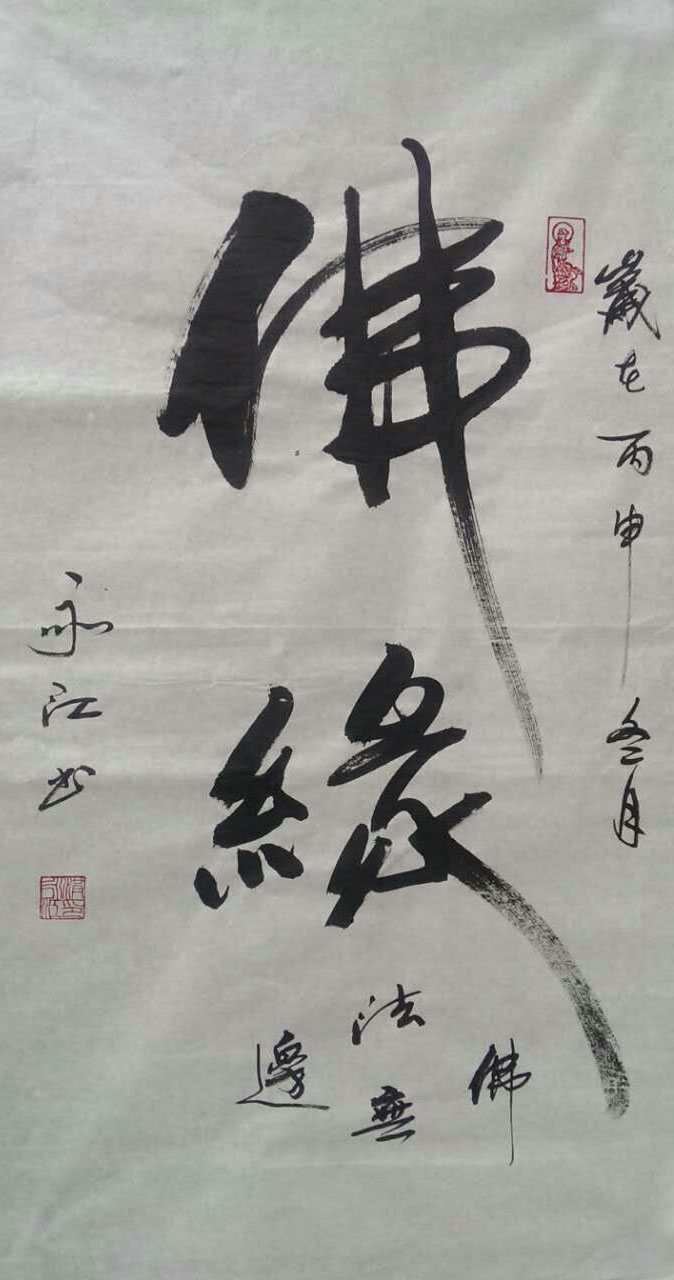 歲在丙申冬月
佛緣
佛
法無
邊
永江书